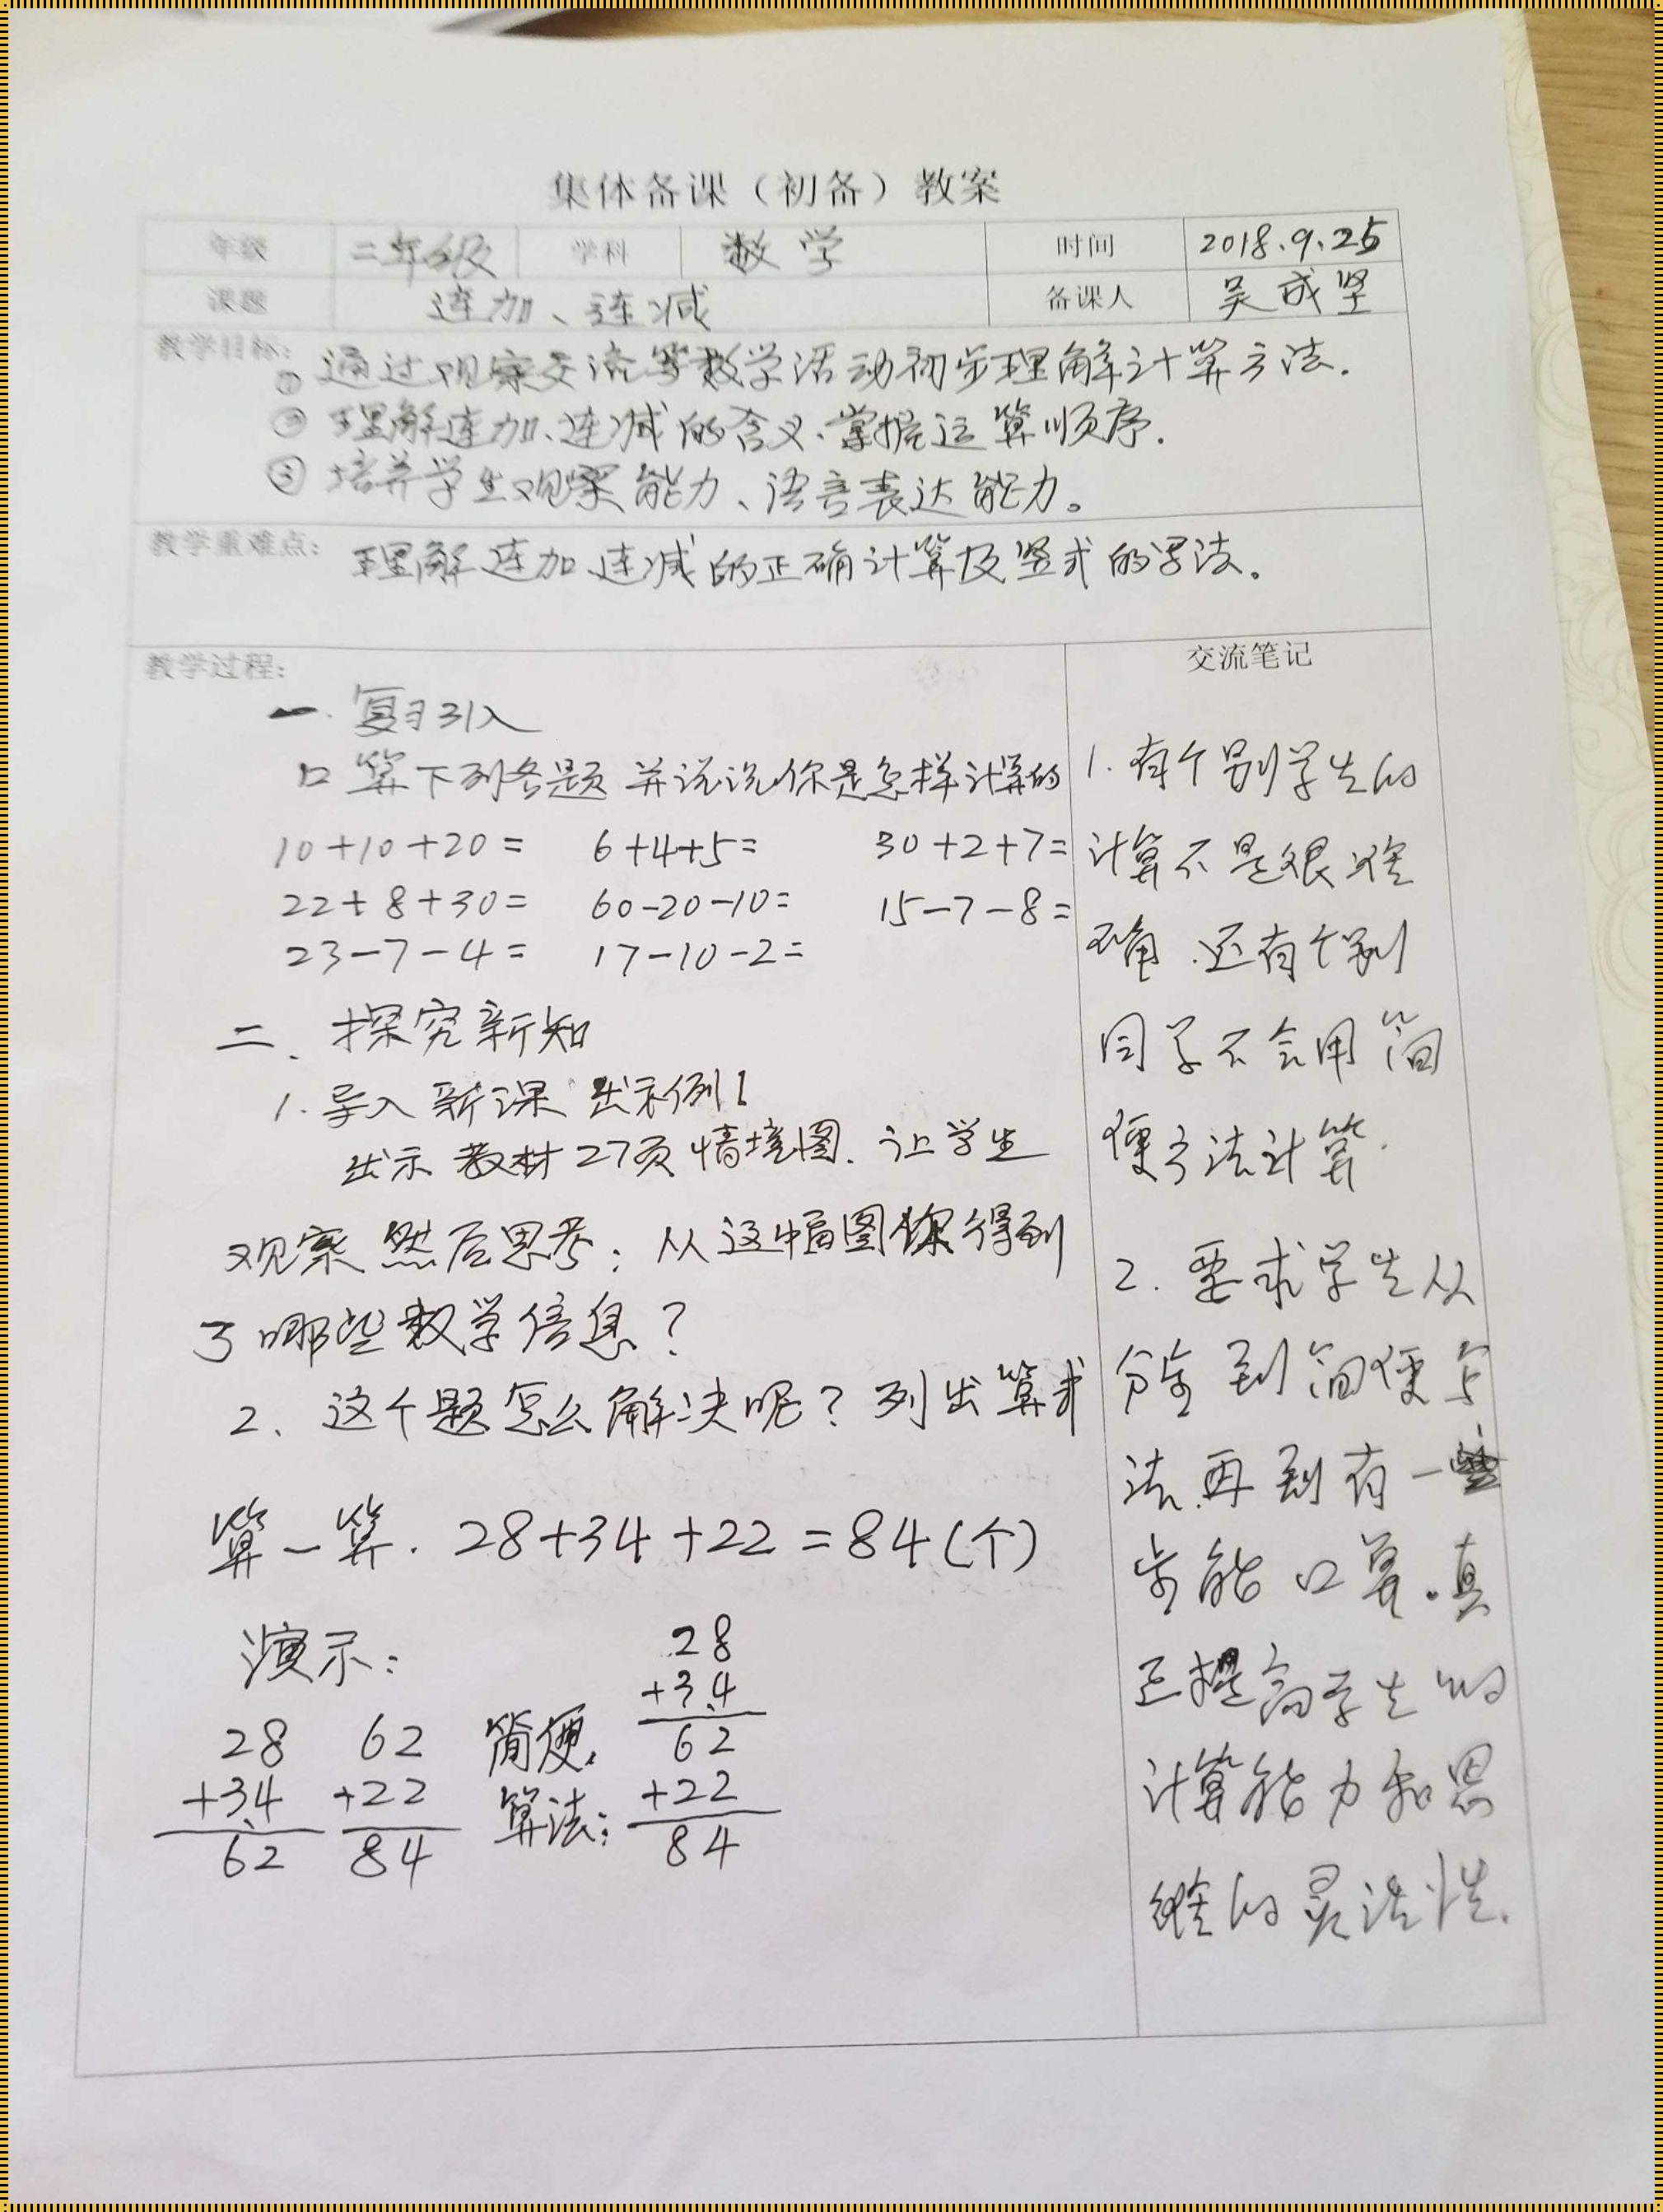 集体备课（初备）教案
年级 二年级 学科 数学 时间 2018.9.25
课题 连加、连减 备课人 吴成坚
教学目标：
① 通过观察交流等数学活动初步理解计算方法.
② 理解连加、连减的含义、掌握运算顺序.
③ 培养学生观察能力、语言表达能力。
教学重难点： 理解连加、连减的正确计算及竖式的写法。
教学过程：
一. 复习引入
口算下列各题 并说说你是怎样计算的
10+10+20= 6+4+5= 30+2+7=
22+8+30= 60-20-10= 15-7-8=
23-7-4= 17-10-2=
二、探究新知
1. 导入新课 出示例1
出示教材27页情境图. 让学生
观察然后思考：从这幅图你得到
了哪些数学信息？
2、这个题怎么解决呢？列出算式
算一算. 28+34+22=84(个)
演示：
28 62
+34 +22
62 84
简便
算法：
28
+34
62
+22
84
交流笔记
1. 有个别学生的
计算不是很准
确.还有个别
同学不会用简
便方法计算.
2. 要求学生从
分步到简便方
法.再到有一些
步能口算.真
正提高学生的
计算能力和思
维的灵活性.